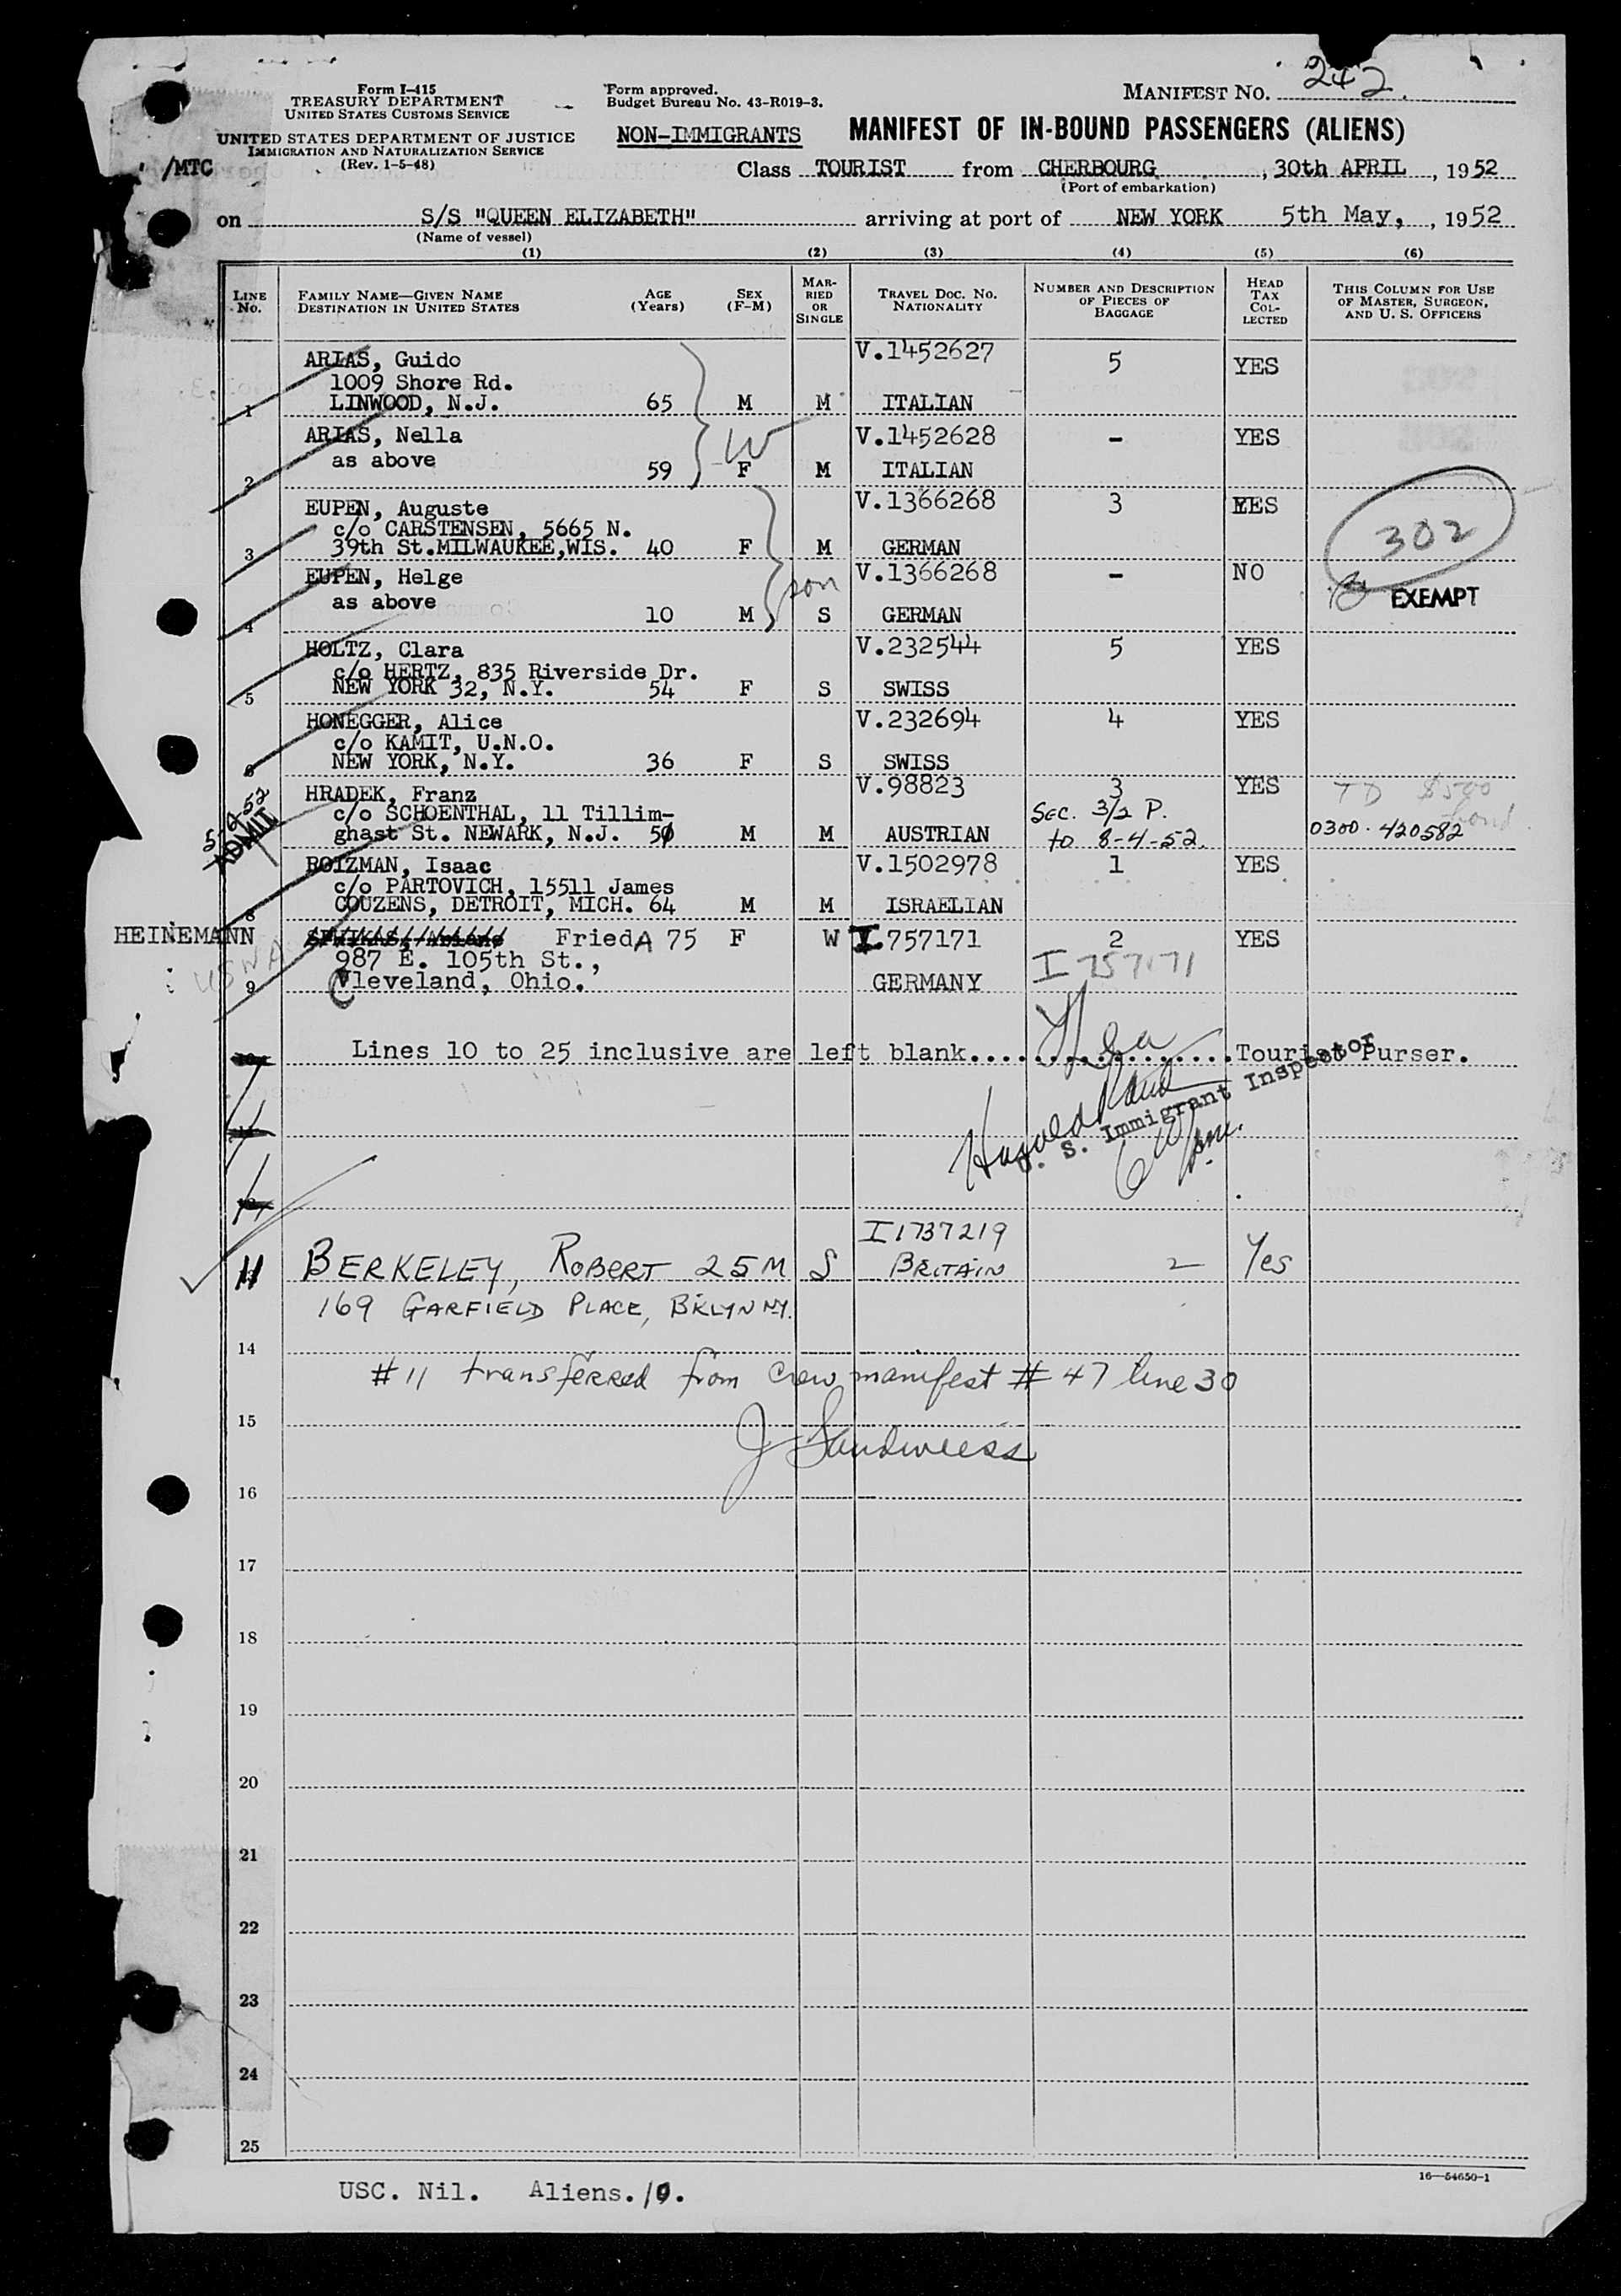 Form I-415
TREASURY DEPARTMENT
UNITED STATES CUSTOMS SERVICE
UNITED STATES DEPARTMENT OF JUSTICE
IMMIGRATION AND NATURALIZATION SERVICE
(Rev. 1-5-48)
/MTC
Form approved.
Budget Bureau No. 43-R019-3.
MANIFEST NO. 242
NON-IMMIGRANTS MANIFEST OF IN-BOUND PASSENGERS (ALIENS)
Class TOURIST from CHERBOURG, 30th APRIL, 1952
(Port of embarkation)
on S/S "QUEEN ELIZABETH" arriving at port of NEW YORK 5th May, , 1952
(Name of vessel)
(1) (2) (3) (4) (5) (6)
LINE NO. FAMILY NAME—GIVEN NAME DESTINATION IN UNITED STATES AGE (Years) SEX (F-M) MARRIED OR SINGLE TRAVEL DOC. NO. NATIONALITY NUMBER AND DESCRIPTION OF PIECES OF BAGGAGE HEAD TAX COLLECTED THIS COLUMN FOR USE OF MASTER, SURGEON, AND U. S. OFFICERS
ARIAS, Guido V.1452627 5 YES
1009 Shore Rd.
1 LINWOOD, N.J. 65 M M ITALIAN
ARIAS, Nella V.1452628 - YES
as above W
2 59 F M ITALIAN
EUPEN, Auguste V.1366268 3 YES
c/o CARSTENSEN, 5665 N. 302
3 39th St.MILWAUKEE,WIS. 40 F M GERMAN
EUPEN, Helge V.1366268 - NO
as above son EXEMPT
4 10 M S GERMAN
HOLTZ, Clara V.232544 5 YES
c/o HERTZ, 835 Riverside Dr.
5 NEW YORK 32, N.Y. 54 F S SWISS
HONEGGER, Alice V.232694 4 YES
c/o KAMIT, U.N.O.
6 NEW YORK, N.Y. 36 F S SWISS
HRADEK, Franz V.98823 3 YES TD $500 bond
c/o SCHOENTHAL, 11 Tillim- SEC. 3/2 P.
ADMIT ghast St. NEWARK, N.J. 50 M M AUSTRIAN to 8-4-52. 0300-420582
ROIZMAN, Isaac V.1502978 1 YES
c/o PARTOVICH, 15511 James
8 COUZENS, DETROIT, MICH. 64 M M ISRAELIAN
HEINEMANN FriedA 75 F W I.757171 2 YES
987 E. 105th St., I 757171
9 Cleveland, Ohio. GERMANY
USNA
10 Lines 10 to 25 inclusive are left blank..................Tourist Purser.
U. S. Immigrant Inspector
11
12
I 1737219
11 BERKELEY, ROBERT 25 M S BRITAIN 2 Yes
169 GARFIELD PLACE, BKLYN NY.
14
#11 transferred from crew manifest # 47 line 30
15
J Sandweiss
16
17
18
19
20
21
22
23
24
25
16—54650-1
USC. Nil. Aliens. 10.